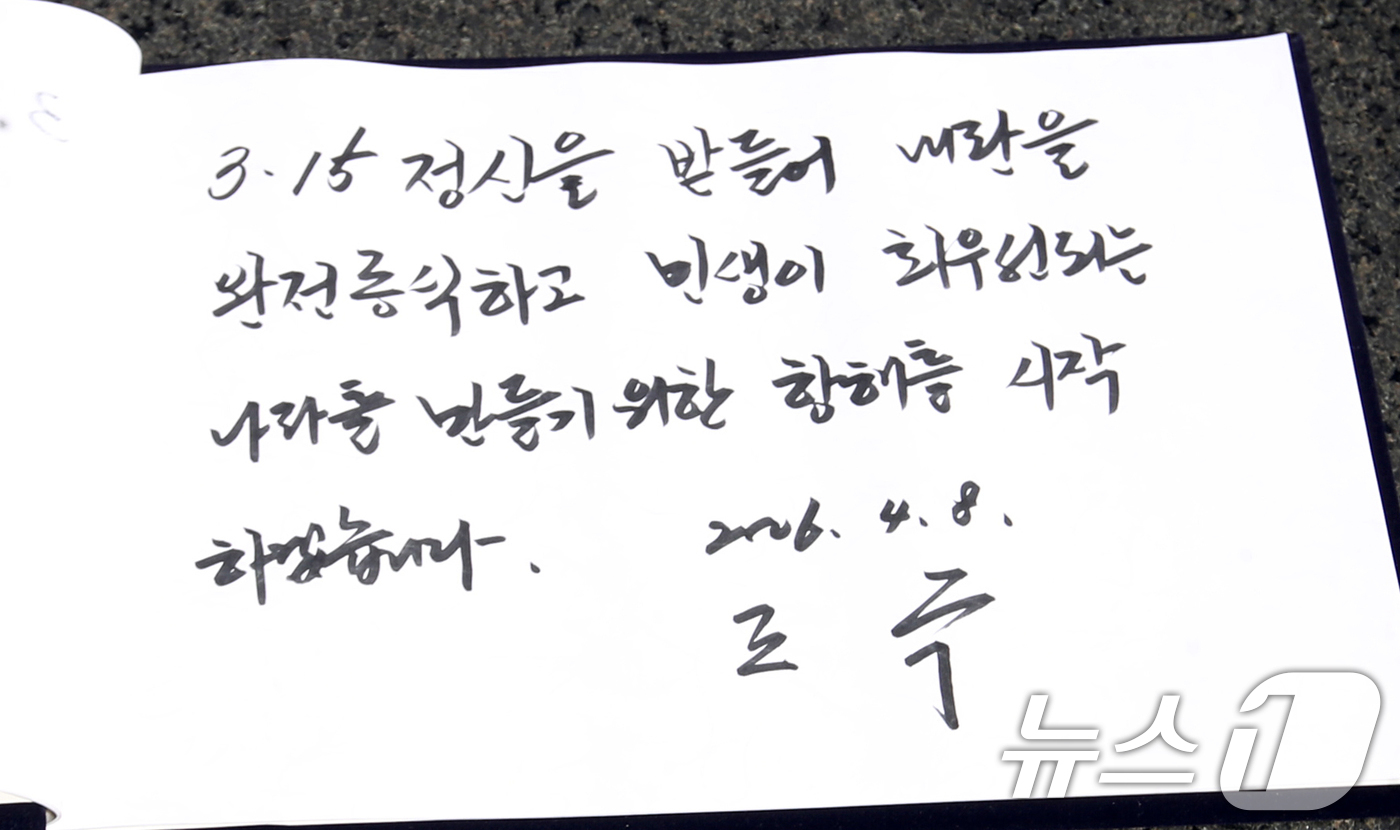 3.15 정신을 받들어 내란을
완전종식하고 민생이 최우선되는
나라를 만들기 위한 항해를 시작
하겠습니다.
2026. 4. 8.
뉴스1